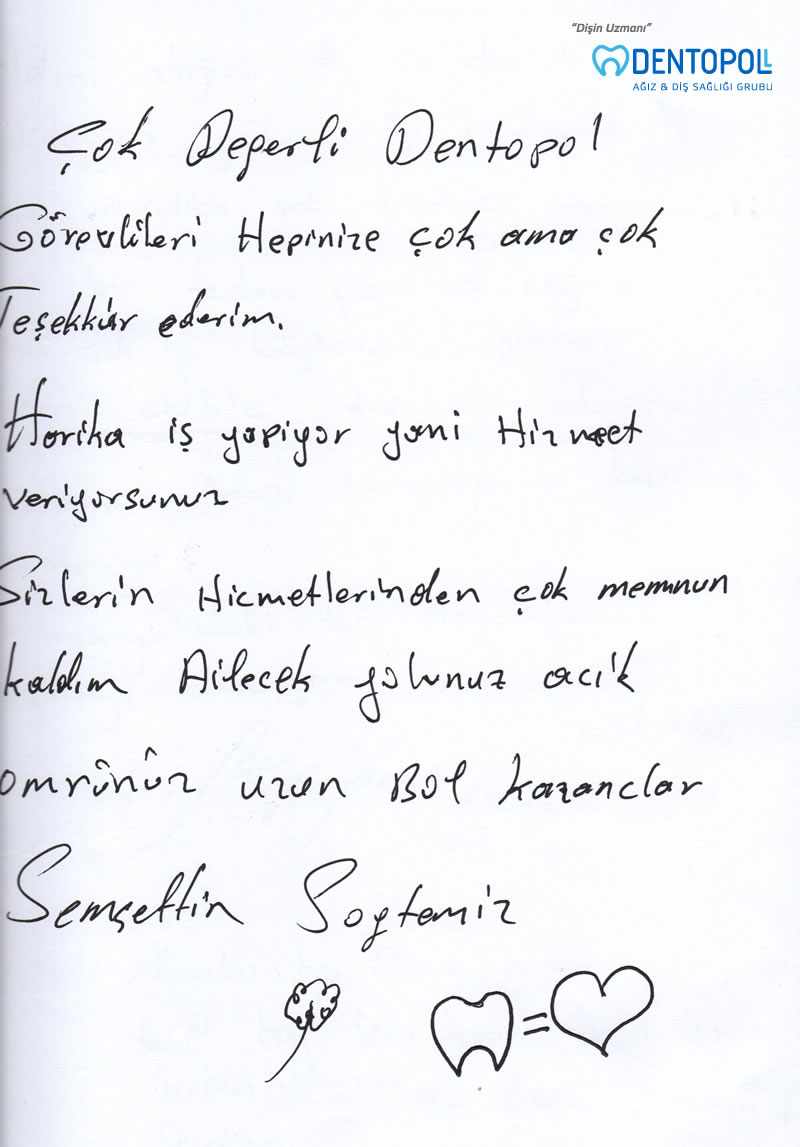 "Dişin Uzmanı"
DENTOPOLL
AĞIZ & DİŞ SAĞLIĞI GRUBU
Çok Değerli Dentopol
Görevlileri Hepinize çok ama çok
Teşekkür ederim.
Harika iş yapiyor yani Hizmeet
veriyorsunuz
Sizlerin Hicmetlerinden çok memnun
kaldım Ailecek yolunuz acik
omrûnûz uzun Bol kazanclar
Semşettin Soytemiz
=